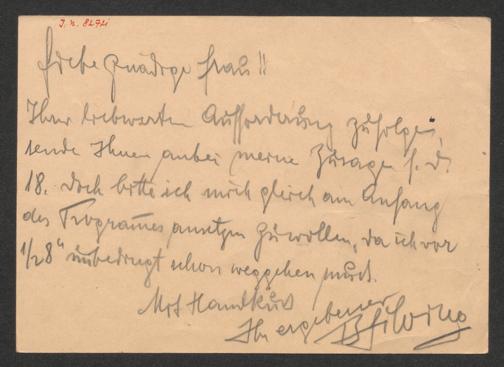 J. N. 8272
Liebe gnädige Frau!!
Ihrer liebwerten Aufforderung zufolge,
sende Ihnen anbei meine Zusage f. d.
18. Doch bitte ich mich gleich am Anfang
des Programes ansetzen zu wollen, da ich vor
1/2 8h unbedingt schon weggehen muss.
Mit Handkuss
Ihr ergebener